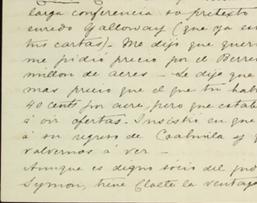 larga conferencia so pretexto
enredo Galloway (que ya en
tus cartas). Me dijo que quer
me pidió precio por el Berren
millon de acres - Le dijo que
mas precio que el que tu hab
40 cents por acre, pero que estab
á oir ofertas. Insistió en que
á su regreso de Coahuila y
volvernos á ver -
Aunque es digno socio del jud
Symon, tiene la ventaja